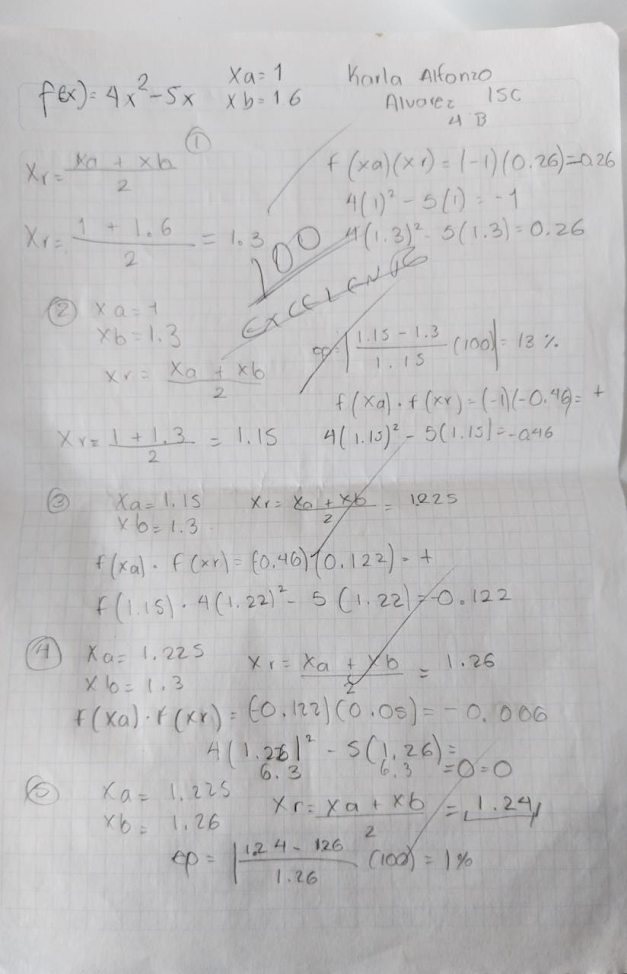 f(x)= 4x²-5x   xa=1
xb=1.6
Karla Alfonzo
Alvarez ISC
4 B
①
Xr= xa + xb / 2
f(xa)(xr)=(-1)(0.26)=0.26
4(1)² - 5(1) = -1
Xr= 1 + 1.6 / 2 = 1.3
4(1.3)² - 5(1.3) = 0.26
100
EXCELENTE
② xa=1
xb=1.3
xr= xa + xb / 2
ep=|1.15 - 1.3 / 1.15 (100)|= 13 %
f(xa) · f(xr) = (-1)(-0.46)= +
Xr= 1 + 1.3 / 2 = 1.15
4(1.15)² - 5(1.15)=-0.46
③ xa=1.15   xr= xa + xb / 2 = 1.225
xb=1.3
f(xa) · f(xr)=(-0.46)(0.122)= +
f(1.15) · 4(1.22)² - 5(1.22)=-0.122
④ xa= 1.225   xr= xa + xb / 2 = 1.26
xb= 1.3
f(xa) · f(xr) = (-0.122)(0.05)= -0.006
4(1.26)² - 5(1.26)=
6.3   6.3 =0=0
xa= 1.225   xr= xa + xb / 2 = 1.24
xb= 1.26
ep= |1.24 - 126 / 1.26 (100)= 1%